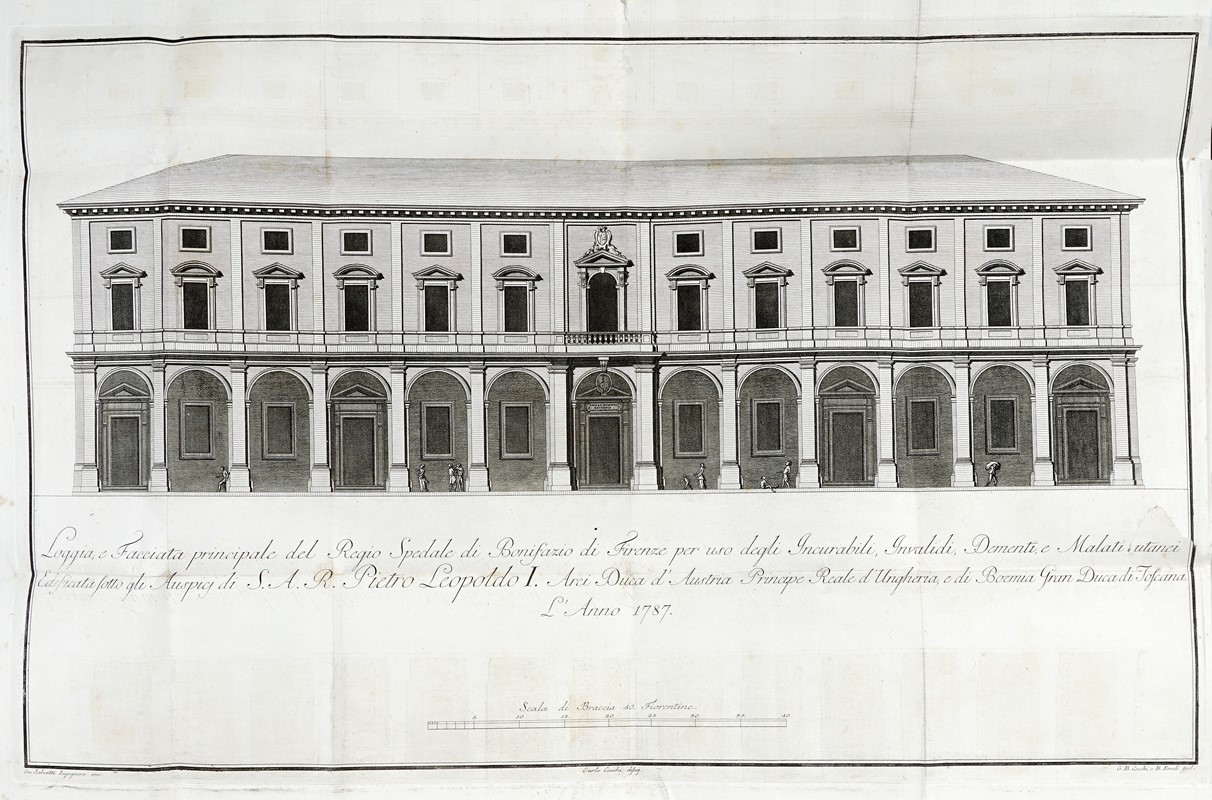 Loggia, e Facciata principale del Regio Spedale di Bonifazio di Firenze per uso degli Incurabili, Invalidi, Dementi, e Malati cutanei
Edificata sotto gli Auspicj di S. A. R. Pietro Leopoldo I. Arci Duca d'Austria Principe Reale d'Ungheria, e di Boemia Gran Duca di Toscana
L'Anno 1787.
Scala di Braccia 40. Fiorentine.
5. 10. 15. 20. 25. 30. 35. 40.
Salvetti Ingegnere inv.
Carlo Cecchi diseg.
G. B. Cecchi, e B. Eredi scol.